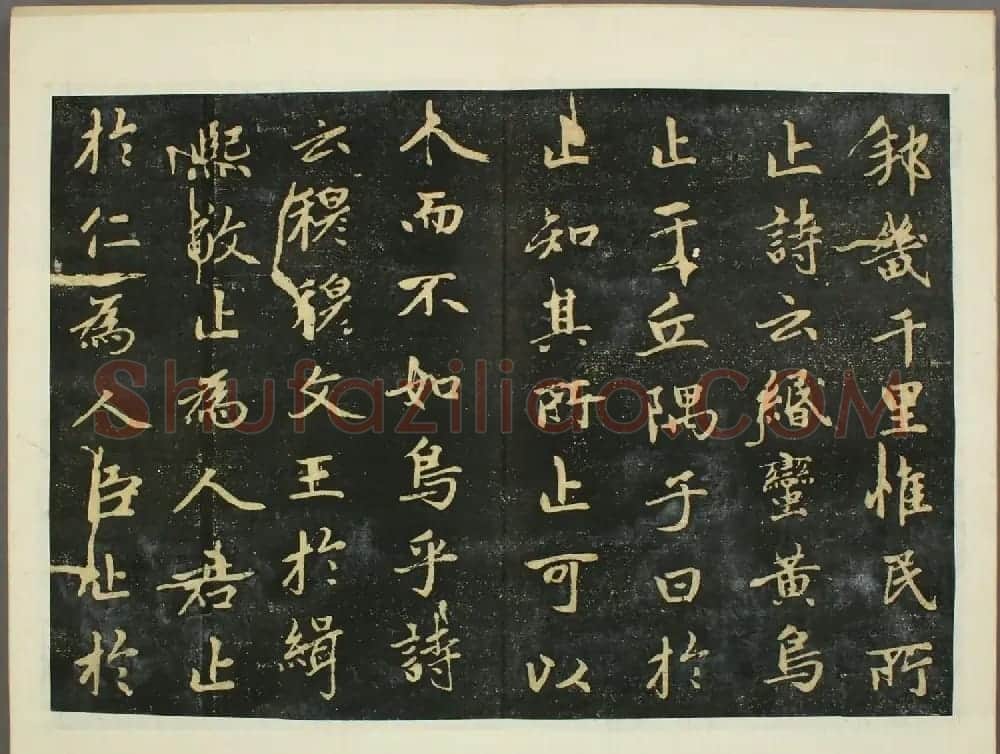 邦畿千里惟民所
止詩云緡蠻黃鳥
止于丘隅子曰於
止知其所止可以
人而不如鳥乎詩
云穆穆文王於緝
熙敬止為人君止
於仁為人臣止於
Shufaziliao.COM